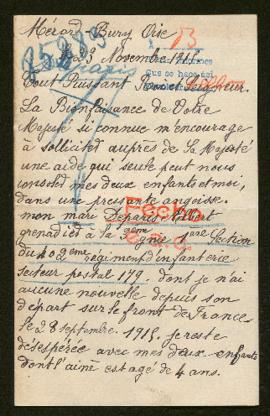 Mérard Bury Oise
25289
B
le 23 Novembre 1915
Tout Puissant Roi et Seigneur.
La Bienfaisance de Votre
Majesté si connue m'encourage
à solliciter auprès de Sa Majesté
une aide qui seule peut nous
consoler mes deux enfants et moi,
dans une pressante angoisse.
mon mari
grenadier à la 9ème Cnie 1ère Section
du 102ème régiment d'infanterie
Secteur postal 179 dont je n'ai
aucune nouvelle depuis son
départ sur le front de France
le 28 septembre 1915, je reste
désespérée avec mes deux enfants
dont l'aîné est agé de 4 ans.